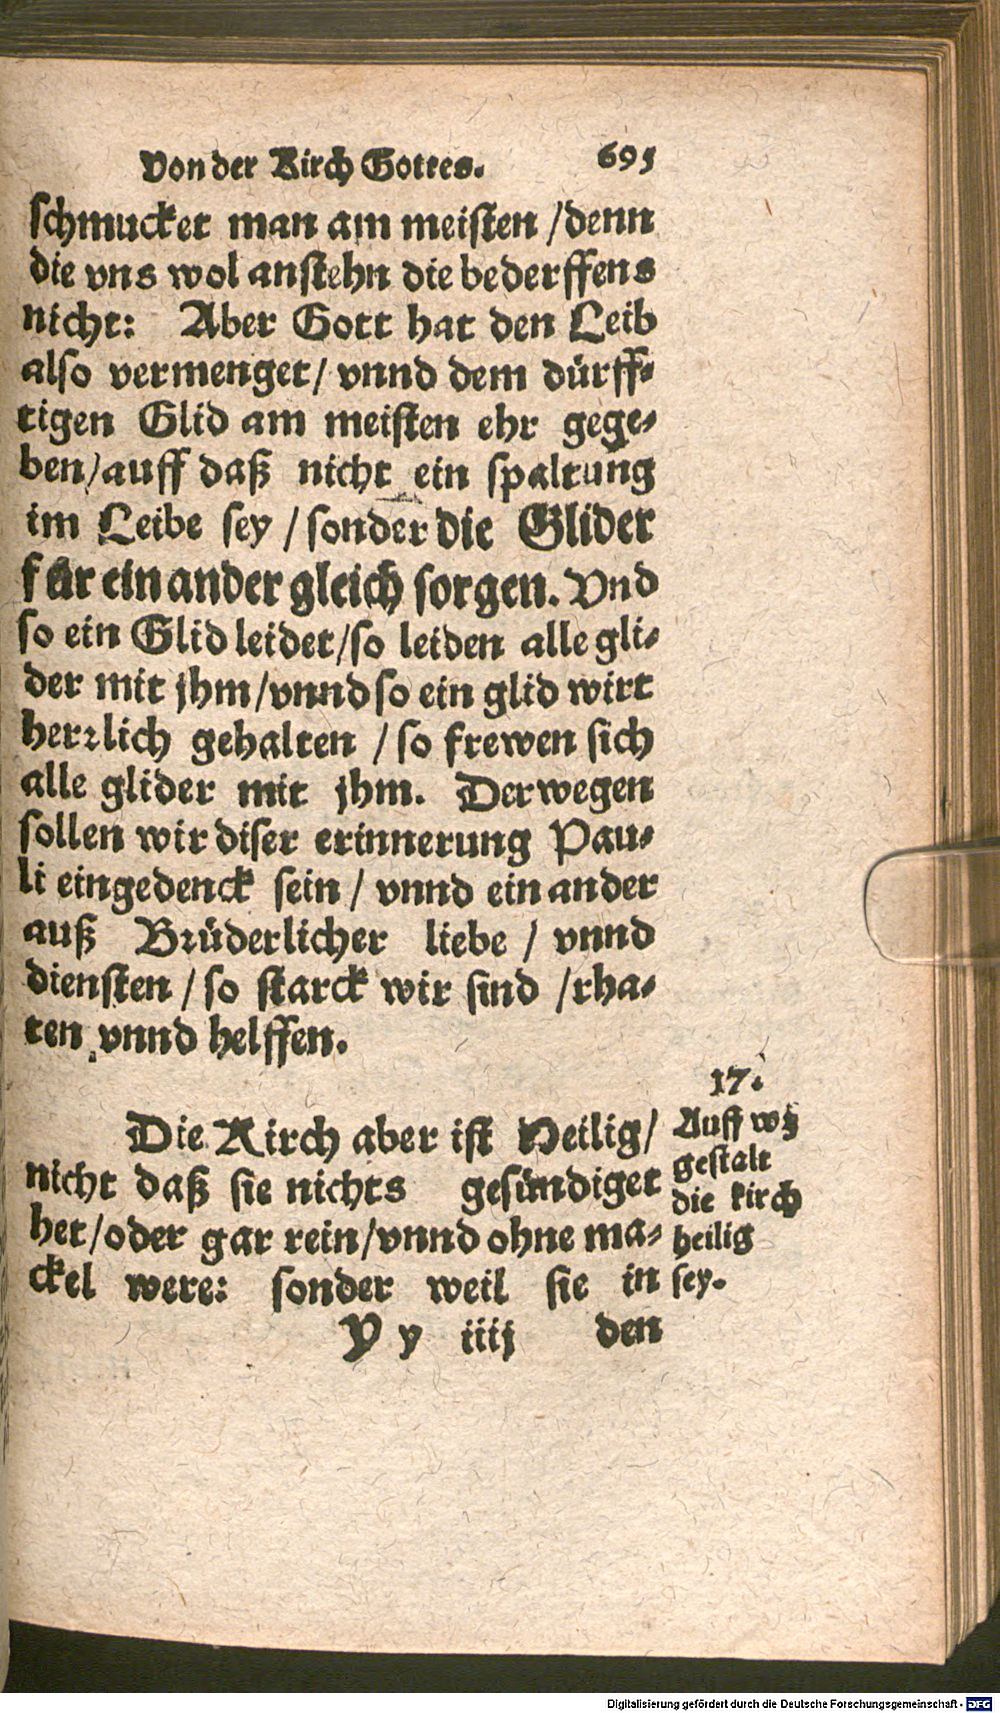 Von der Kirch Gottes. 695
schmucket man am meisten / denn
die vns wol anstehn die bederffens
nicht: Aber Gott hat den Leib
also vermenget / vnnd dem dürff-
tigen Glid am meisten ehr gege-
ben / auff daß nicht ein spaltung
im Leibe sey / sonder die Glider
für ein ander gleich sorgen. Vnd
so ein Glid leidet / so leiden alle gli-
der mit jhm / vnnd so ein glid wirt
herrlich gehalten / so frewen sich
alle glider mit jhm. Derwegen
sollen wir diser erinnerung Pau-
li eingedenck sein / vnnd ein ander
auß Brüderlicher liebe / vnnd
diensten / so starck wir sind / rha-
ten vnnd helffen.
Die Kirch aber ist Heilig /
nicht daß sie nichts gesündiget
het / oder gar rein / vnnd ohne ma-
ckel were: sonder weil sie in
17.
Auff wz
gestalt
die kirch
heilig
sey.
Y y iiij den
Digitalisierung gefördert durch die Deutsche Forschungsgemeinschaft - DFG